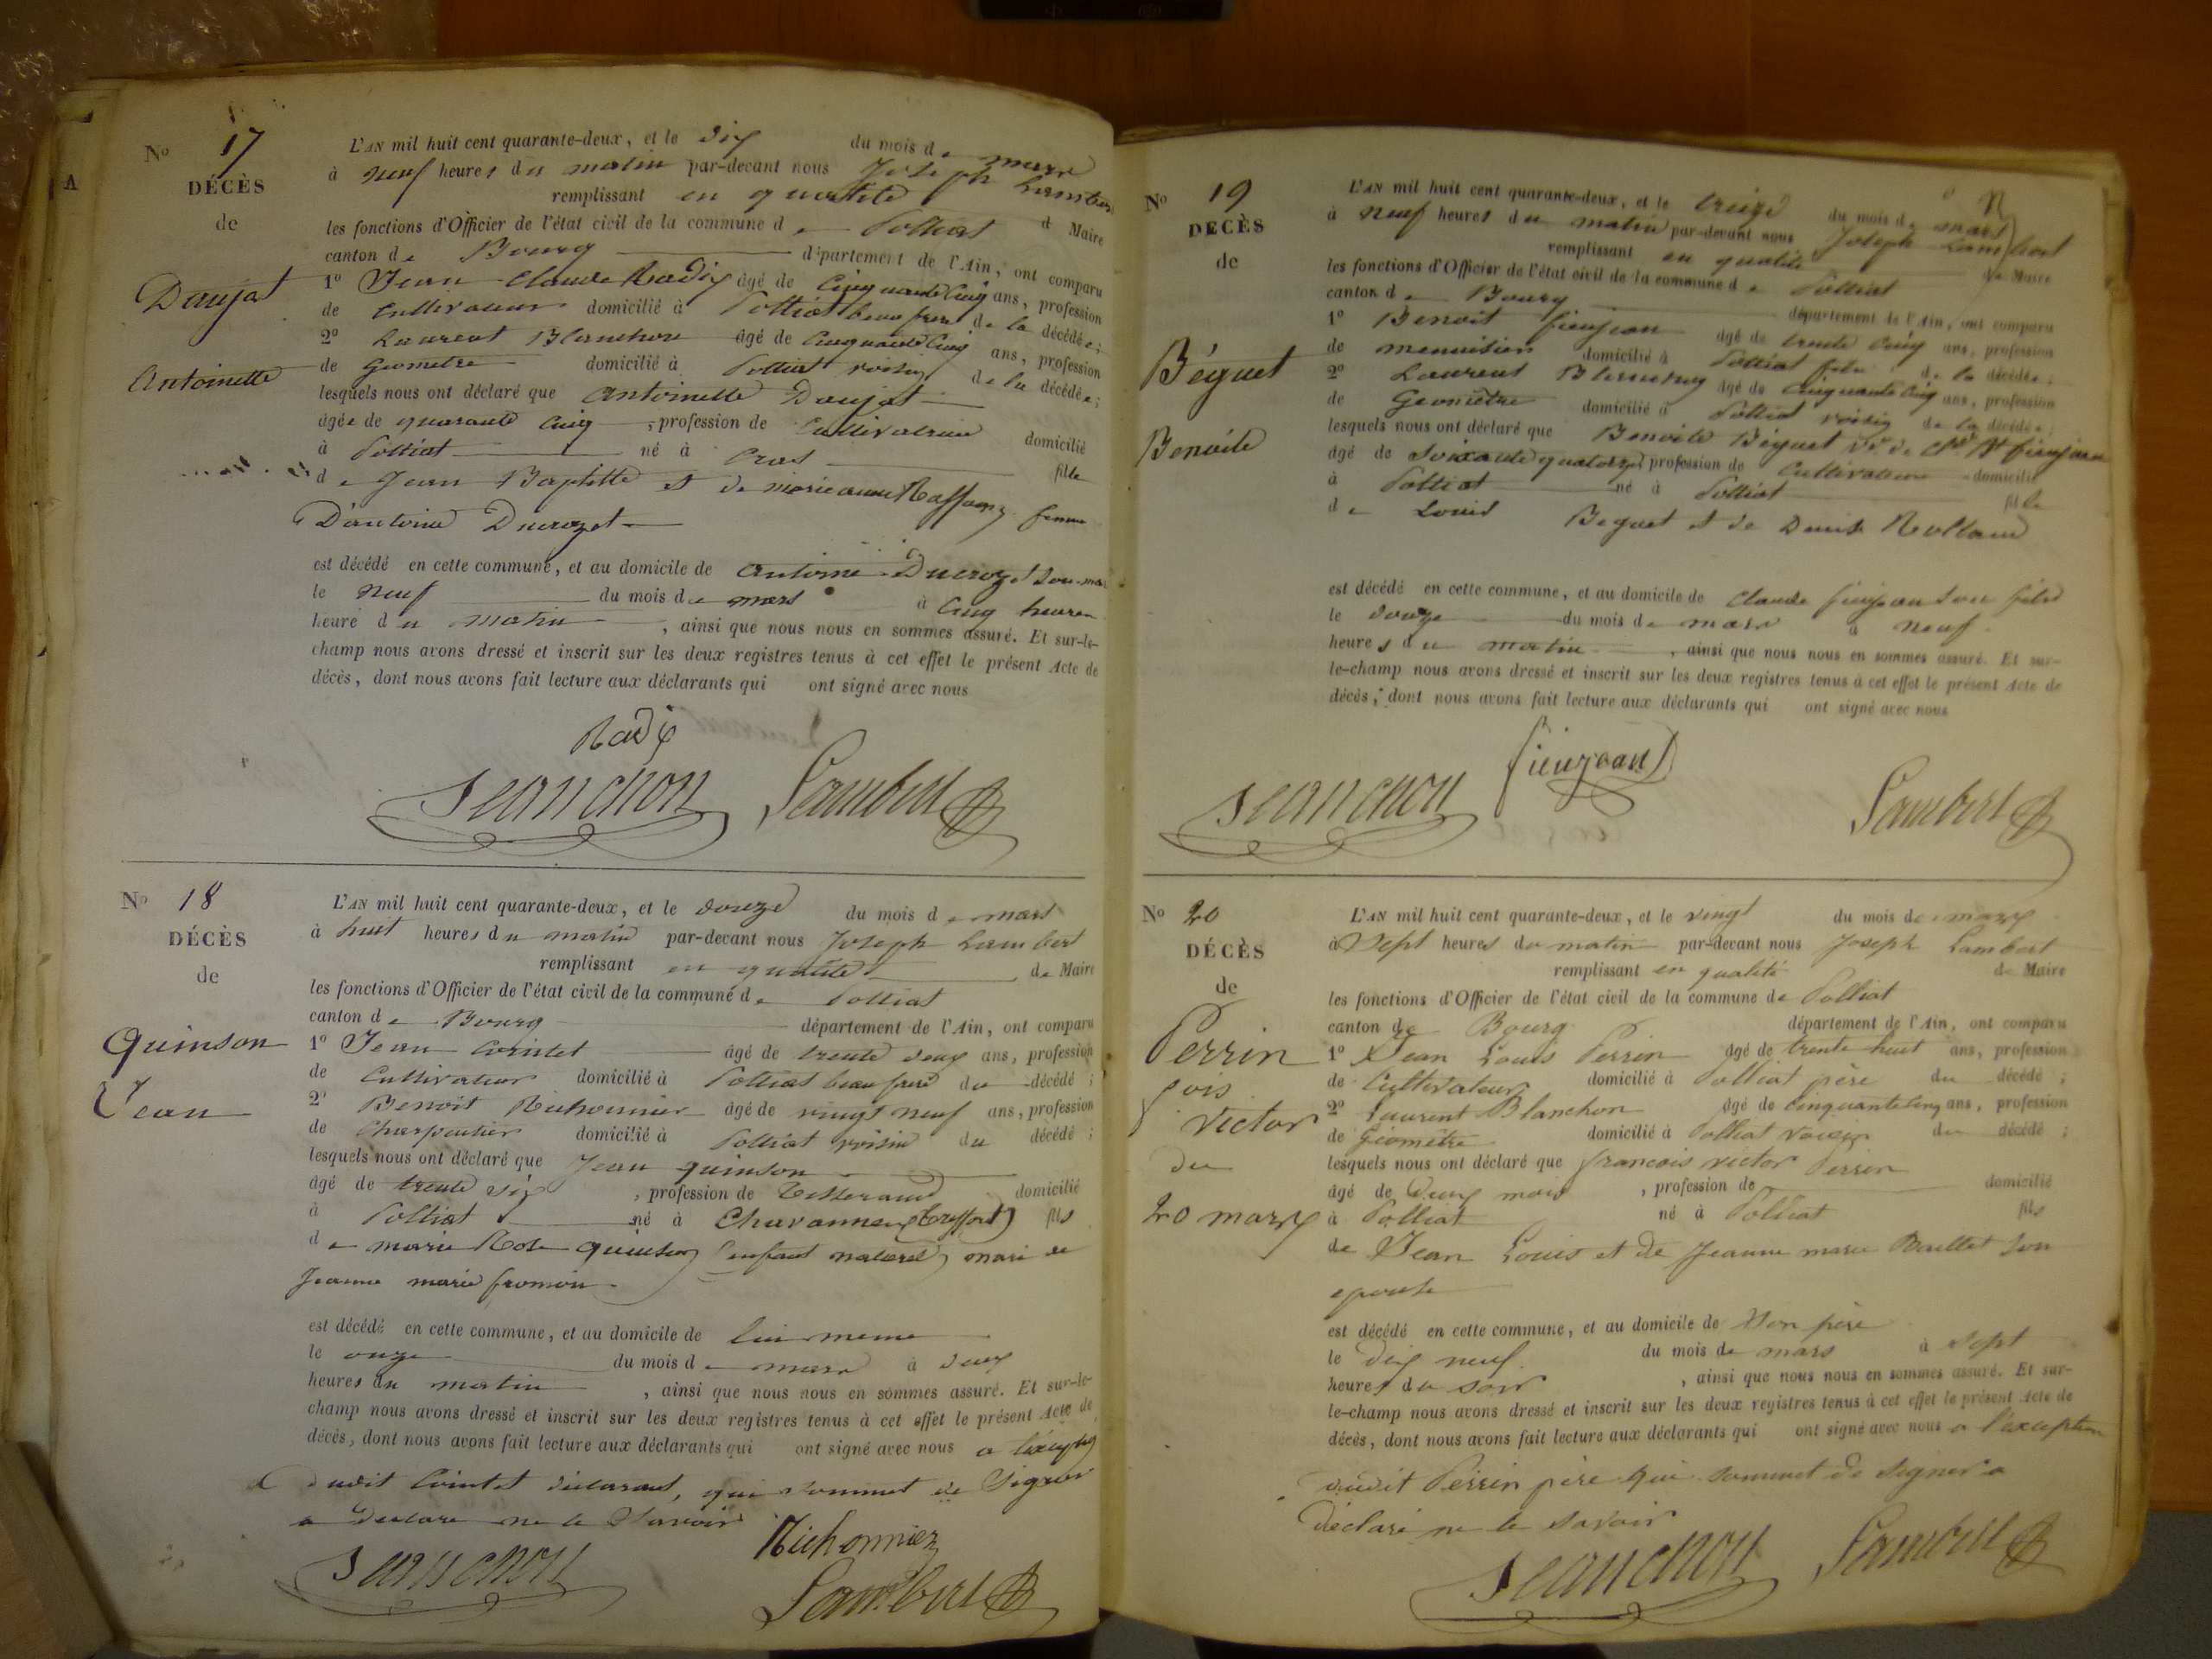 A
No 17
DÉCÈS
de
Daujat
Antoinette
L'AN mil huit cent quarante-deux, et le dix du mois de mars
à neuf heures du matin par-devant nous Joseph Lambert
remplissant en qualité d Maire
les fonctions d'Officier de l'état civil de la commune de Polliat
canton de Bourg département de l'Ain, ont comparu
1o Jean Claude Radix âgé de cinquante cinq ans, profession
de cultivateur domicilié à Polliat beau frere de la décédée;
2o Laurent Blanchon âgé de cinquante cinq ans, profession
de Géomètre domicilié à Polliat voisin de la décédée;
lesquels nous ont déclaré que Antoinette Daujat
âgée de quarante cinq, profession de cultivatrice domicilié
à Polliat né à Cras fille
de Jean Baptiste et de marie anne femme
D'antoine Ducrozet
est décédé en cette commune, et au domicile de antoine Ducrozet son mari
le neuf du mois de mars à cinq heures
heure du matin, ainsi que nous nous en sommes assuré. Et sur-le-
champ nous avons dressé et inscrit sur les deux registres tenus à cet effet le présent Acte de
décès, dont nous avons fait lecture aux déclarants qui ont signé avec nous
Radix
Blanchon Lambert
No 18
DÉCÈS
de
Quinson
Jean
L'AN mil huit cent quarante-deux, et le douze du mois de mars
à huit heures du matin par-devant nous Joseph Lambert
remplissant en qualité de Maire
les fonctions d'Officier de l'état civil de la commune de Polliat
canton de Bourg département de l'Ain, ont comparu
1o Jean Cointet âgé de trente deux ans, profession
de cultivateur domicilié à Polliat beau frere du décédé;
2o Benoit Richonnier âgé de vingt neuf ans, profession
de Charpentier domicilié à Polliat voisin du décédé;
lesquels nous ont déclaré que Jean quinson
âgé de trente six, profession de Tisserand domicilié
à Polliat né à Chavannes (treffort) fils
de marie Rose quinson (enfant naturel) mari de
Jeanne marie fromon
est décédé en cette commune, et au domicile de lui meme
le onze du mois de mars à deux
heures du matin, ainsi que nous nous en sommes assuré. Et sur-le-
champ nous avons dressé et inscrit sur les deux registres tenus à cet effet le présent Acte de
décès, dont nous avons fait lecture aux déclarants qui ont signé avec nous a l'éxception
dudit Cointet déclarant, qui sommet de signer
a Declare ne le Savoir
Richonnier
Blanchon Lambert
No 19
DÉCÈS
de
Béguet
Benoite
L'AN mil huit cent quarante-deux, et le treize du mois de mars
à neuf heures du matin par-devant nous Joseph Lambert
remplissant en qualité de Maire
les fonctions d'Officier de l'état civil de la commune de Polliat
canton de Bourg département de l'Ain, ont comparu
1o Benoit fieujean âgé de trente cinq ans, profession
de menuisier domicilié à Polliat fils de la décédée;
2o Laurent Blanchon âgé de cinquante cinq ans, profession
de Géomètre domicilié à Polliat voisin de la décédée;
lesquels nous ont déclaré que Benoite Béguet Ve de fieujean
âgé de soixante quatorze, profession de cultivateur domicilié
à Polliat né à Polliat fille
de Louis Beguet et de Denise Rolland
est décédé en cette commune, et au domicile de Claude fieujean son fils
le douze du mois de mars à neuf
heures du matin, ainsi que nous nous en sommes assuré. Et sur-
le-champ nous avons dressé et inscrit sur les deux registres tenus à cet effet le présent Acte de
décès, dont nous avons fait lecture aux déclarants qui ont signé avec nous
fieujean
Blanchon Lambert
No 20
DÉCÈS
de
Perrin
fois
victor
du
20 mars
L'AN mil huit cent quarante-deux, et le vingt du mois de mars
à Sept heures du matin par-devant nous Joseph Lambert
remplissant en qualité de Maire
les fonctions d'Officier de l'état civil de la commune de Polliat
canton de Bourg département de l'Ain, ont comparu
1o Jean Louis Perrin âgé de trente huit ans, profession
de Cultivateur domicilié à Polliat père du décédé;
2o Laurent Blanchon âgé de cinquante cinq ans, profession
de Géomètre domicilié à Polliat voisin du décédé;
lesquels nous ont déclaré que francois victor Perrin
âgé de Deux mois, profession de domicilié
à Polliat né à Polliat fils
de Jean Louis et de Jeanne marie Baillet son
epouse
est décédé en cette commune, et au domicile de Son père
le Dix neuf du mois de mars à sept
heures du soir, ainsi que nous nous en sommes assuré. Et sur-
le-champ nous avons dressé et inscrit sur les deux registres tenus à cet effet le présent Acte de
décès, dont nous avons fait lecture aux déclarants qui ont signé avec nous a l'exception
dudit Perrin père qui sommet de signer a
Déclaré ne le savoir
Blanchon Lambert